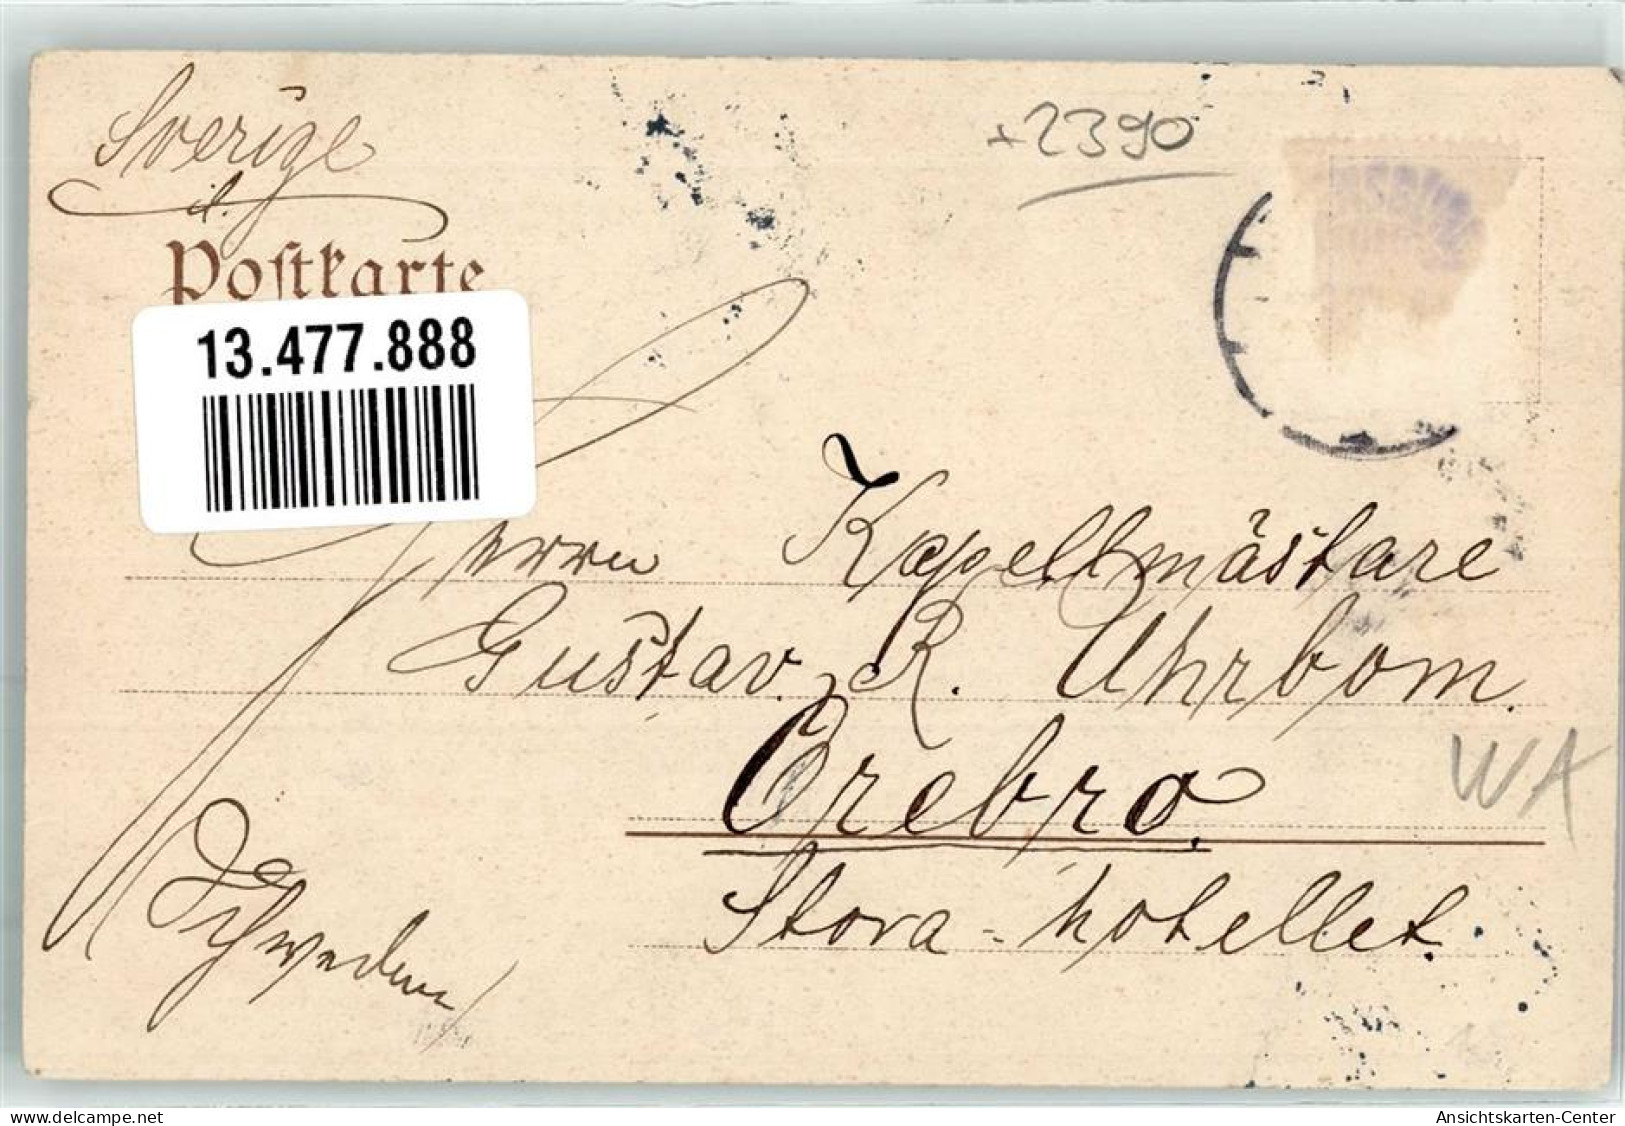 Sverige
+2390
Postkarte
13.477.888
Herrn Kapellmästare
Gustav. R. Uhrbom.
Örebro.
WA
Stora-hotellet.
Schweden
delcampe.net
Ansichtskarten-Center